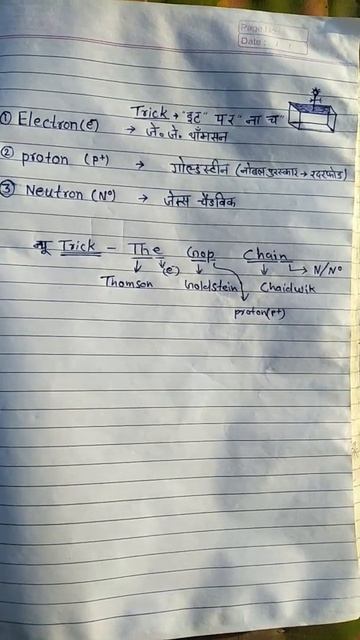 Page No.
Date: / /
Trick → "इट" पर "ना च
① Electron(ē) → जे० जे० थॉमसन
② proton (p+) → गोल्डस्टीन (नोबल पुरस्कार → रदरफोर्ड)
③ Neutron (N°) → जेम्स चैडविक
Trick - The Gop Chain → N/N°
(e)
Thomson Goldstein Chaidwik
proton(p+)